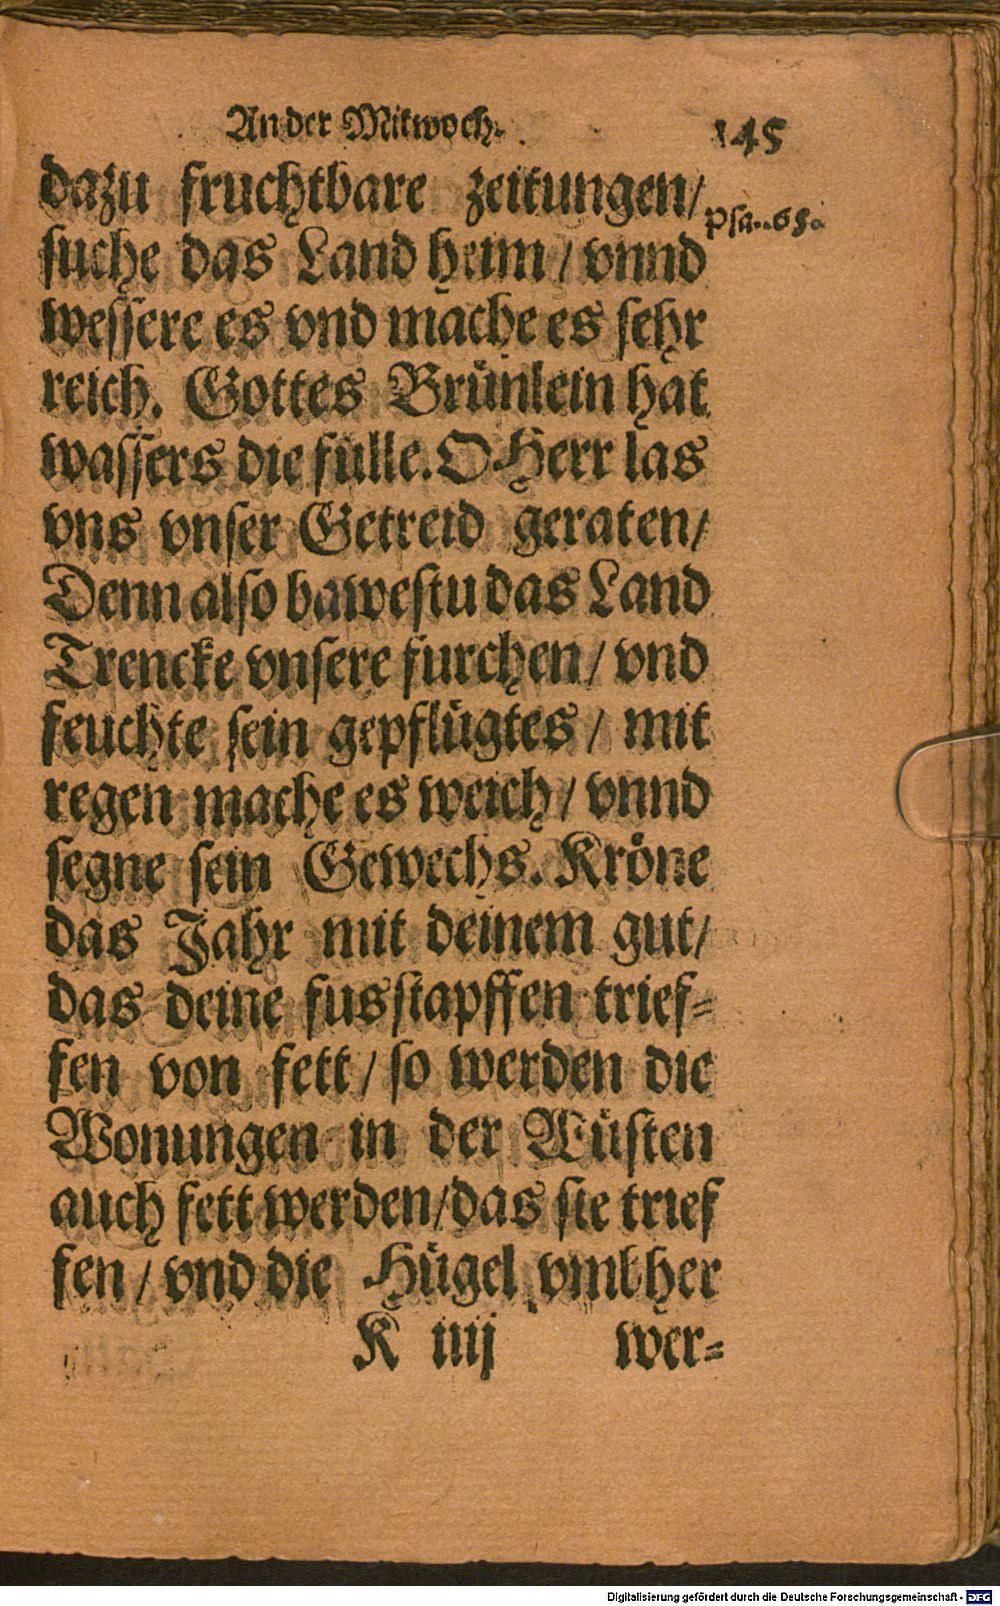 An der Mitwoch. 145
dazu fruchtbare zeitungen/ Psa. 65.
suche das Land heim / vnnd
wessere es vnd mache es sehr
reich. Gottes Brünlein hat
wassers die fülle. O Herr las
vns vnser Getreid geraten/
Denn also bawestu das Land
Trencke vnsere furchen / vnd
feuchte sein gepflügtes / mit
regen mache es weich / vnnd
segne sein Gewechs. Kröne
das Jahr mit deinem gut/
das deine fusstapffen trief-
fen von fett / so werden die
Wonungen in der Wüsten
auch fett werden/das sie trief
fen / vnd die Hügel vmbher
K iiij wer-
Digitalisierung gefördert durch die Deutsche Forschungsgemeinschaft - DFG